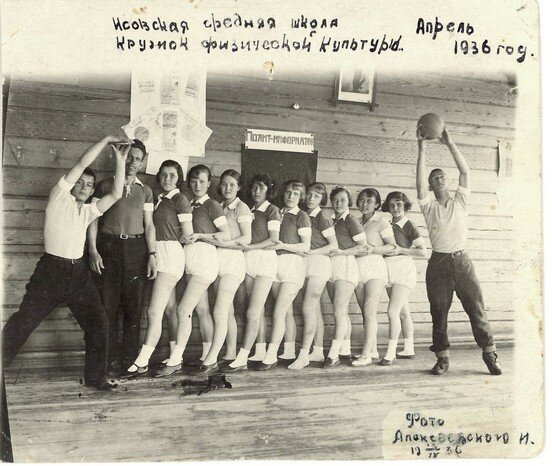 Исовская средняя школа
Апрель
Кружок физической культуры.
1936 год.
ПОЛИТ-ИНФОРМАТОР
Фото
Алексеевского И.
19 36